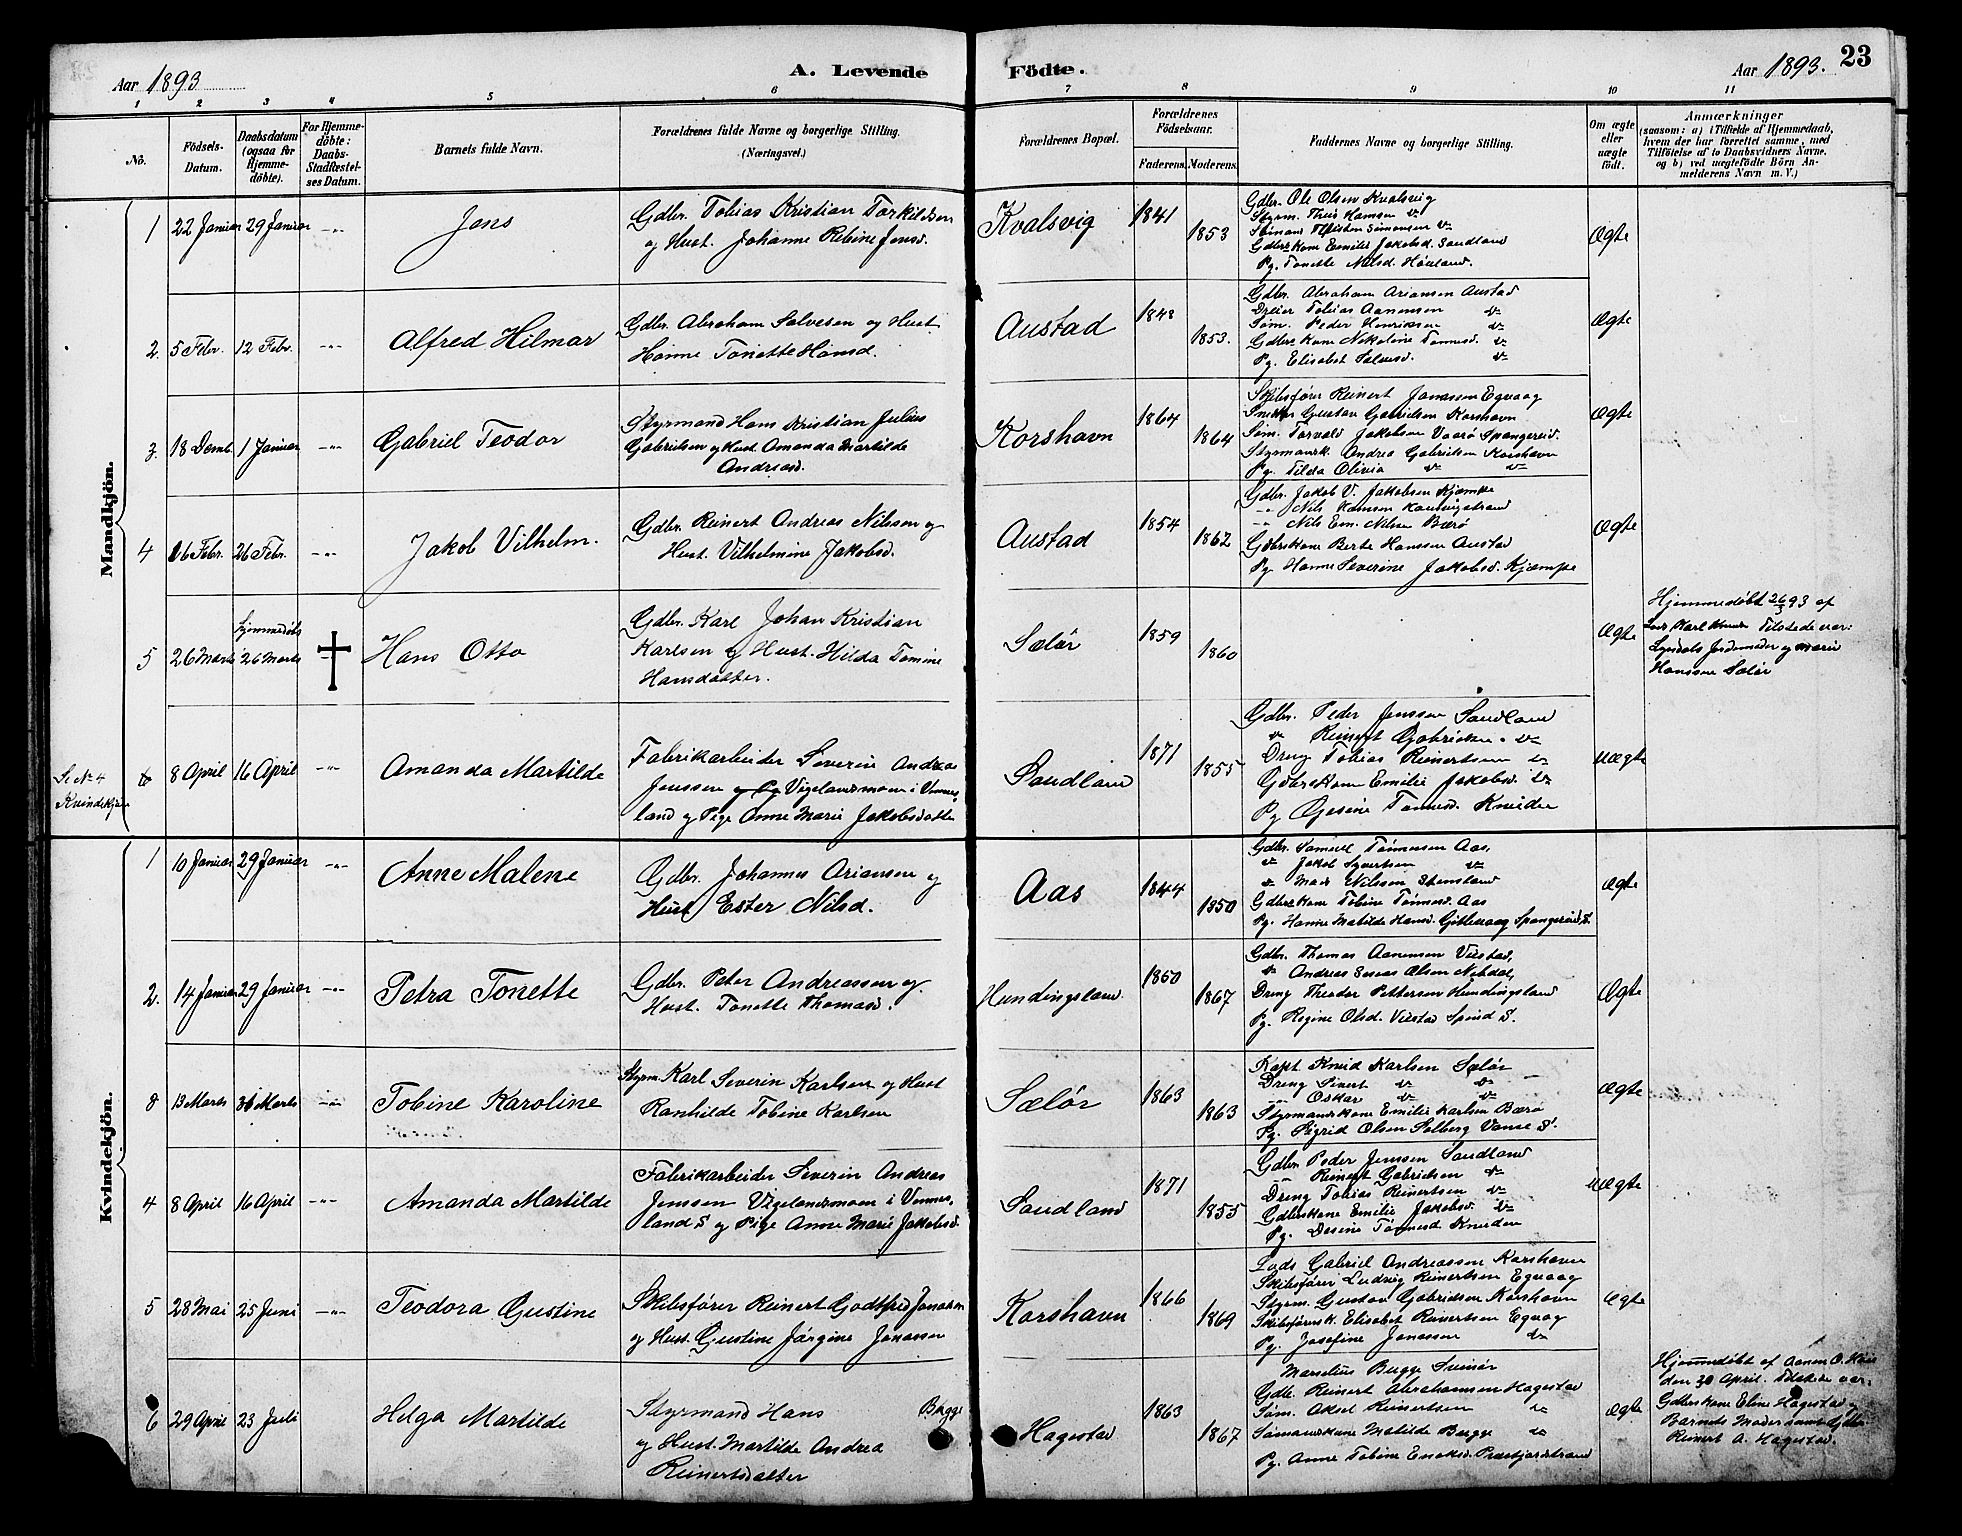 Aar 1893
A. Levende
Fødte.
Aar 1893.
23
1 2 3 4 5 6 7 8 9 10 11
No.
Fødsels-
Datum.
Daabsdatum
(ogsaa for
Hjemme-
døbte).
For Hjemme-
døbte:
Daabs-
Stadfæstel-
ses Datum.
Barnets fulde Navn.
Forældrenes fulde Navne og borgerlige Stilling.
(Næringsvei.)
Forældrenes Bopæl.
Forældrenes
Fødselsaar.
Faderens. Moderens.
Faddernes Navne og borgerlige Stilling.
Om ægte
eller
uægte
født.
Anmærkninger
(saasom: a) i Tilfælde af Hjemmedaab,
hvem der har forrettet samme, med
Tilføielse af to Daabsvidners Navne,
og b) ved uægtefødte Börn An-
melderens Navn m. V.)
Mandkjön.
1 22 Januar 29 Januar -"- Jens
Gdbr. Tobias Kristian Torkildsen
og Hust. Johanne Rebine Jensd.
Kvalsvig 1841 1853
Gdbr. Ole Olsen Kvalsvig
Styrm. Theis Hansen do
Sømand Thorsten Simonsen do
Gdbrskone Emilie Jakobsd. Sandland
Pg. Tonette Nilsd. Høiland.
Ægte
2. 5 Febr. 12 Febr. -"- Alfred Hilmar
Gdbr. Abraham Salvesen og Hust
Hanne Tonette Hansd.
Austad 1848 1853.
Gdbr. Abraham Ariansen Austad
Dreier Tobias Aanensen do
Søm. Peder Henriksen do
Gdbrskone Nikoline Tønnesd. do
Pg. Elisabet Salvesd. do
Ægte
3. 18 Decmb. 1 Januar -"- Gabriel Teodor
Styrmand Hans Kristian Julius
Gabrielsen og Hust. Amanda Martilde
Andreasd.
Korshavn 1864 1864
Skibsfører Reinert Jonassen Egvaag
Snekker Gustav Gabrielsen Korshavn
Søm. Torvald Jakobsen Vaarø Spangereid.
Styrmansk. Andrea Gabrielsen Korshavn
Pg. Tilda Olivia do do
Ægte
4 16 Febr. 26 Febr. -"- Jakob Vilhelm.
Gdbr. Reinert Andreas Nilssen og
Hust. Vilhelmine Jakobsd.
Austad 1854 1862
Gdbr. Jakob V. Jakobsen Kjæmpe
-"- Nils Hansen
-"- Nils Em. Nilsen Bærø
Gdbrskone Berte Hanssen Austad
Pg. Hanne Severine Jakobsd. Kjæmpe
Ægte
5 26 Marts hjemmedøbt 26 Marts † Hans Otto
Gdbr. Karl Johan Kristian
Karlsen og Hust. Hilda Tomine
Hansdatter.
Sælør 1859 1860
Ægte
Hjemmedøbt 26/3 93 af
Karl Tilstede var:
Lyndals Jordemoder og Marie
Hanssen Sælør
S. No 4
Kvindekjøn
6 8 April 16 April -"- Amanda Martilde
Fabrikarbeider Severin Andreas
Jenssen Vigelandsmoen i Vennes-
land og Pige Anne Marie Jakobsdatter
Sandland 1871 1855
Gdbr. Peder Jenssen Sandland
do Reinert Gabrielsen do
Dreng Tobias Reinertsen do
Gdbrskone Emilie Jakobsd. do
Pg Gjesine Tønnesd. Kneiden
uægte
Kvindekjön.
1 10 Januar 29 Januar -"- Anne Malene
Gdbr. Johannes Ariansen og
Hust Ester Nilsd.
Aas 1844 1850
Gdbr. Samuel Tønnesen Aas,
do Jakob Syvertsen do
do Mads Nilssen Stensland
Gdbrskone Tobine Tønnesd. Aas
Pg. Hanne Matilde Hansd. Gitlevaag Spangereid S.
Ægte
2. 14 Januar 29 Januar -"- Petra Tonette
Gdbr. Peter Andreassen og
Hust. Tonette Thomasd.
Hundingsland. 1860 1867
Gdbr. Thomas Aanensen Viestad,
do Andreas Olsen
Dreng Theodor Pettersen Hundingsland
Pg. Regine Olsd. Viestad Spind S.
Ægte
3 13 Marts 31 Marts -"- Tobine Karoline
Styrm. Karl Severin Karlsen og Hust
Ranhilde Tobine Karlsen
Sælør 1863 1863
Kapt Knud Karlsen Sælør
Dreng Sivert do do
-"- Oskar do do
Styrmandskone Emilie Karlsen Bærø
Pg. Sigrid Olsen Solberg Vanse S.
Ægte
4 8 April 16 April -"- Amanda Martilde
Fabrikarbeider Severin Andreas
Jenssen Vigelandsmoen i Vennes-
land S og Pige Anne Marie Jakobsd.
Sandland 1871 1855
Gdbr Peder Jenssen Sandland
-"- Reinert Gabrielsen do
Dreng Tobias Reinertsen do
Gdbrskone Emilie Jakobsd. do
Pg. Tønnesd Kneiden
uÆgte
5 28 Mai 25 Juni -"- Teodora Gustine
Skibsfører Reinert Godtfred Jonassen
og Hust. Gustine Jørgine Jonassen
Korshavn 1866 1869
Lods Gabriel Andreassen Korshavn
Skibsfører Ludvig Reinertsen Egvaag
Styrm. Gustav Gabrielsen Korshavn
Skibsførersk. Elisabet Reinertsen Egvaag
Pg. Josefine Jonassen do
Ægte
6 29 April 23 Juli Helga Martilde
Styrmand Hans Bugge
og Hust. Martilde Andrea
Reinertsdatter
Hagestad 1863 1867
Marselius Bugge Svinør
Gdb. Reinert Abrahamsen Hagestad
Søm. Aksel Reinertsen do
Sømandskone Matilde Bugge do
Pg. Anne Tobine Enoksd. Præstjordstrand
Ægte
Hjemmedøbt af Aanen O.
den 30 April. Tilstede var:
Gdbrskone Eline Hagestad og
Barnets Moder samt Gdbr.
Reinert A. Hagestad.